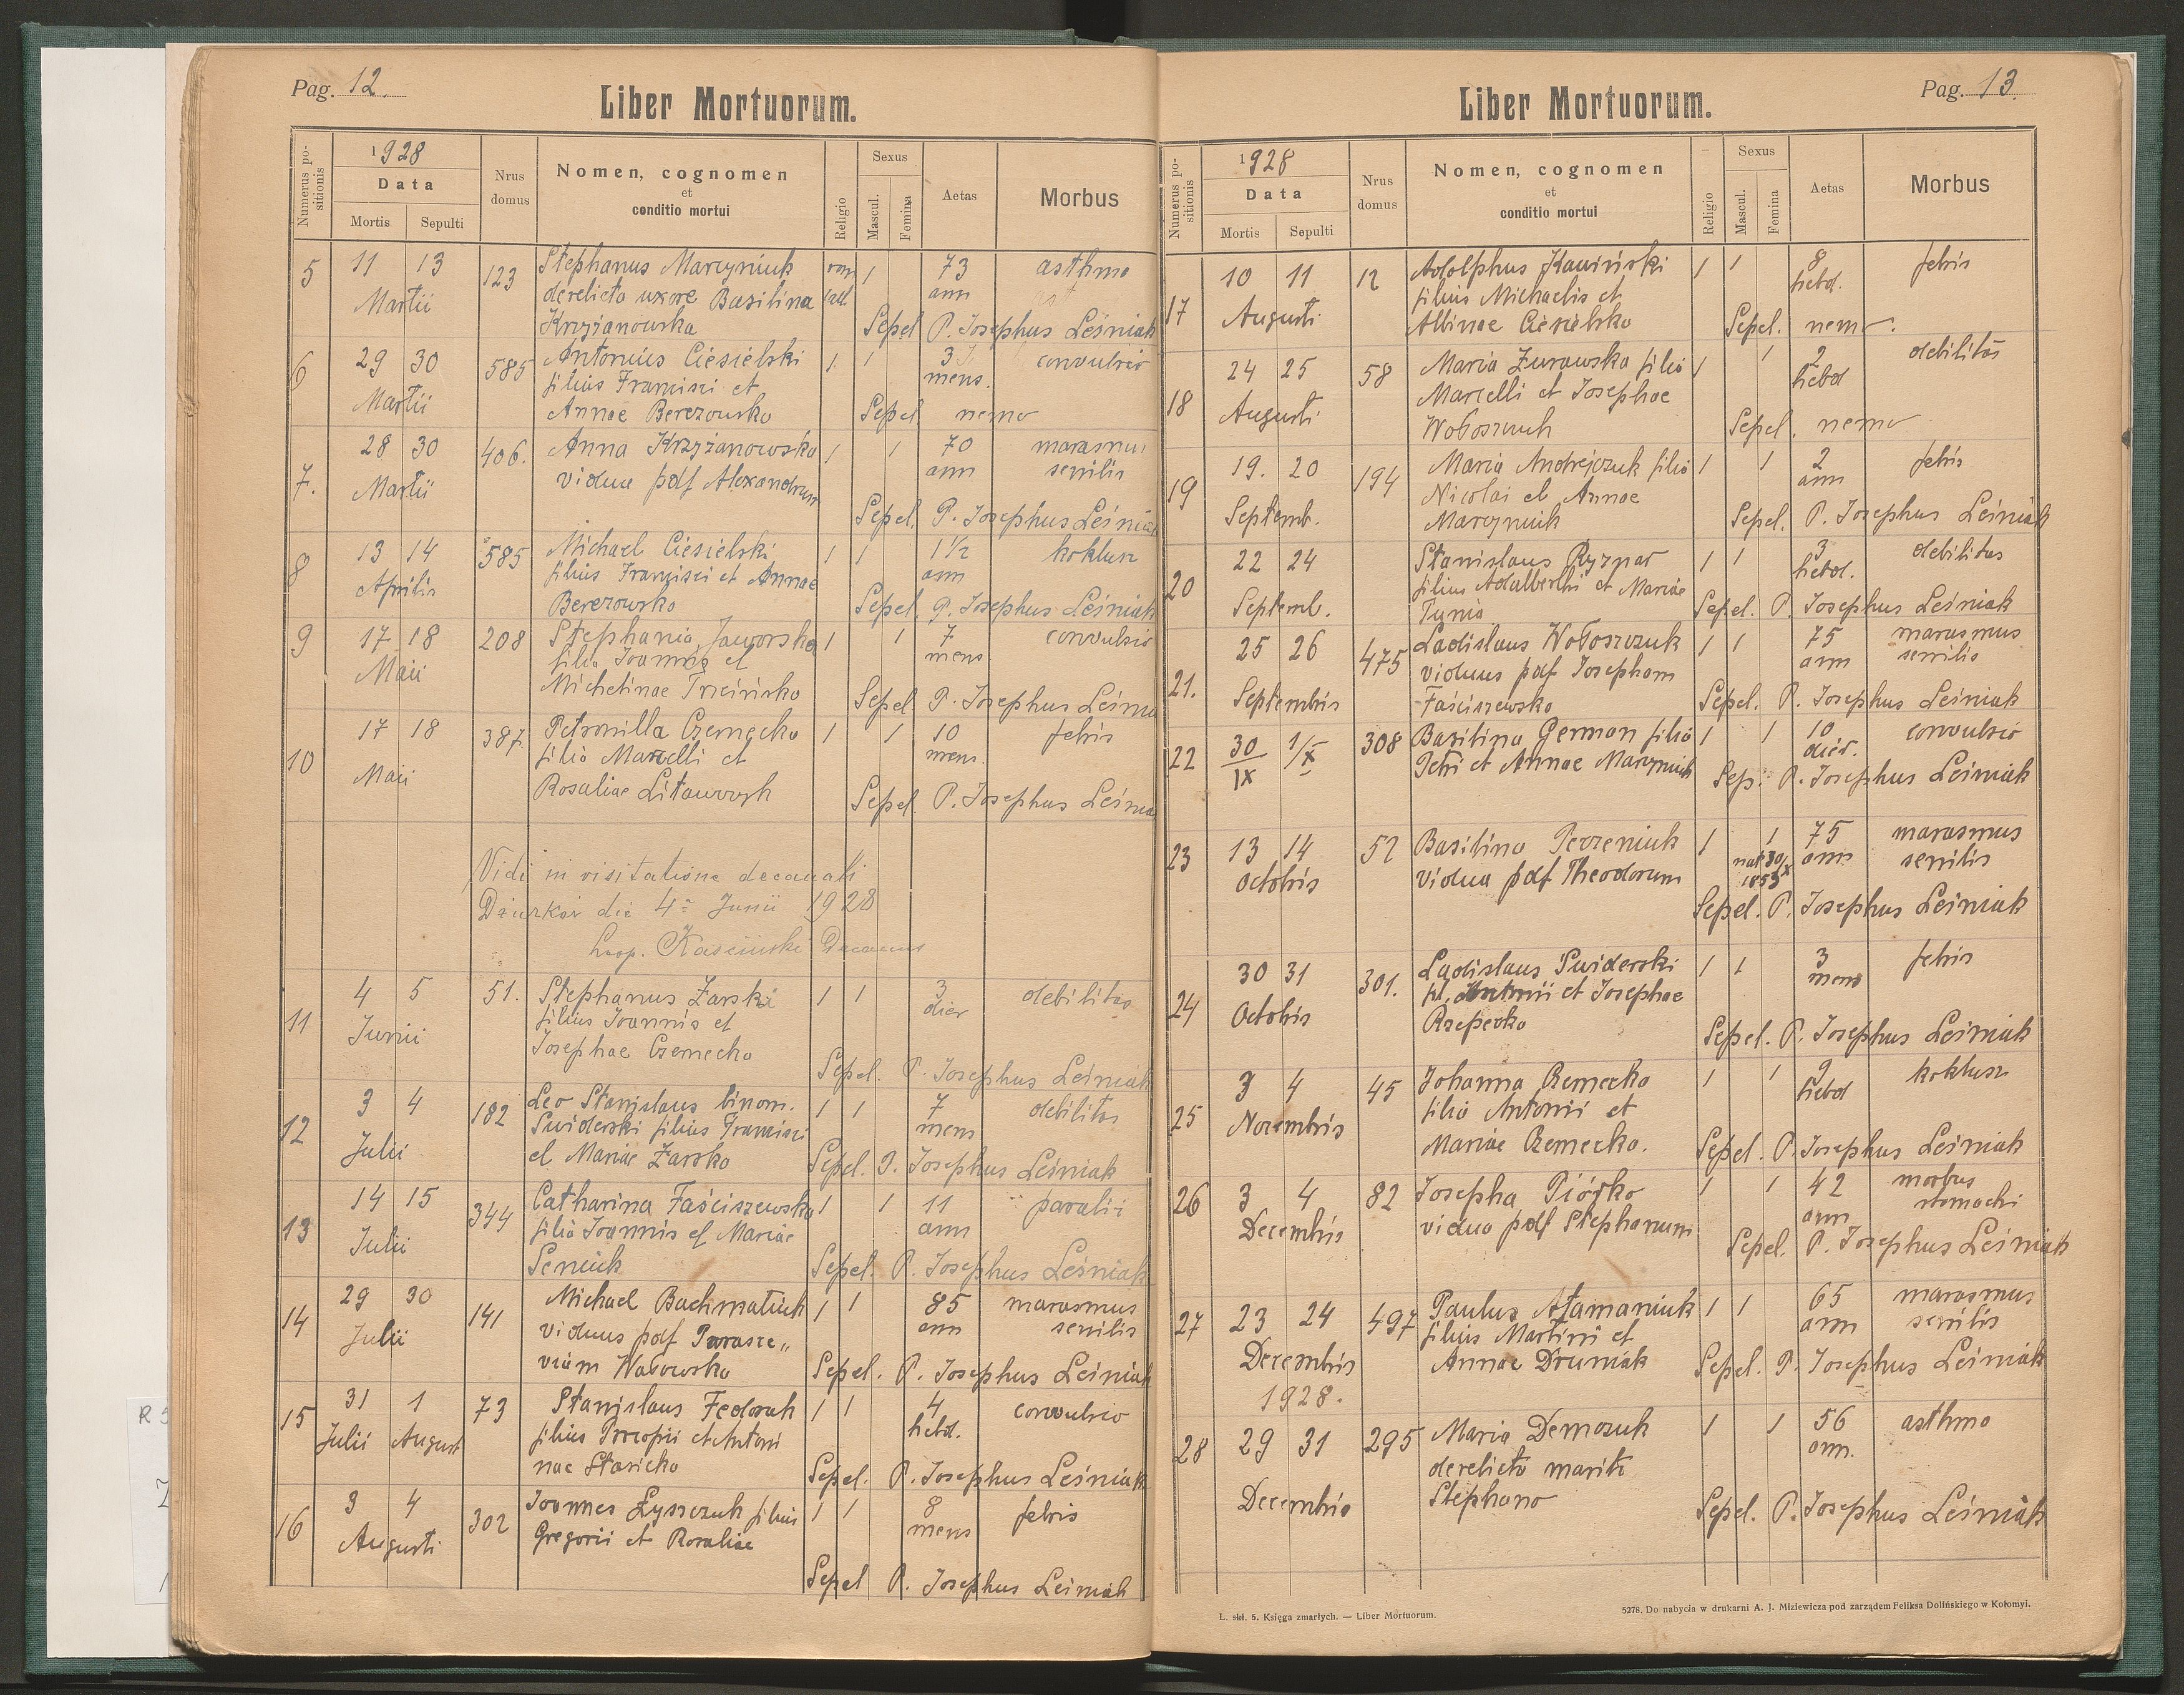 Pag. 12.
Liber Mortuorum.
Numerus positionis
1928
Data
Mortis Sepulti
Nrus domus
Nomen, cognomen
et
conditio mortui
Religio
Sexus
Mascul. Femina
Aetas
Morbus
5 11 13 Martii 123 Stephanus Marcyniuk rom 1 73 asthma
derelicta uxore Basilina ann
Krzyżanowska Sepel P. Josephus Leśniak
6 29 30 Martii 585 Antonius Ciesielski 1 1 3 convulsio
filius Francisci et mens.
Annae Berezowska Sepel nemo
7. 28 30 Martii 406. Anna Krzyżanowska 1 1 70 marasmus
vidua pdf Alexandrum ann senilis
Sepel. P. Josephus Leśniak
8 13 14 Aprilis 585 Michael Ciesielski 1 1 1 1/2 koklusz
filius Francisci et Annae ann
Berezowska Sepel. P. Josephus Leśniak
9 17 18 Maii 208 Stephania Jaworska 1 1 7 convulsio
filia Joannis et mens
Michelinae Trzcińska Sepel P. Josephus Leśnia
10 17 18 Maii 387 Petronilla Czernecka 1 1 10 febris
filia Marcelli et mens.
Rosaliae Litawczyk Sepel. P. Josephus Leśnia
Vidi in visitatione decanali
Dżurków die 4 Junii 1928
Kasciński Decanus
11 4 5 Junii 51. Stephanus Żarski 1 1 3 debilitas
filius Joannis et dier
Josephae Czernecka
Sepel. P. Josephus Leśniak
12 3 4 Julii 182 Leo Stanislaus binom. 1 1 7 debilitas
Swiderski filius Francisci mens
et Mariae Żarska Sepel. P. Josephus Leśniak
13 14 15 Julii 344 Catharina Faściszewska 1 1 11 paraliż
filia Joannis et Mariae ann
Seniuk Sepel. P. Josephus Leśniak
14 29 30 Julii 141 Michael Bachmatiuk 1 1 85 marasmus
viduus pdf Parasce„ ann senilis
viam Wabowska Sepel. P. Josephus Leśniak
15 31 1 Julii August 73 Stanislaus Fedorak 1 1 4 convulsio
filius Procopii et Antoni hebd.
nae Stasicka Sepel. P. Josephus Leśniak
16 3 4 Augusti 302 Joannes Łyszczuk filius 1 1 8 febris
Gregorii et Rosaliae mens
Sepel P. Josephus Leśniak
Pag. 13.
Liber Mortuorum.
Numerus positionis
1928
Data
Mortis Sepulti
Nrus domus
Nomen, cognomen
et
conditio mortui
Religio
Sexus
Mascul. Femina
Aetas
Morbus
17 10 11 Augusti 12 Adolphus Kawiński 1 1 8 febris
filius Michaelis et hebd.
Albinae Ciesielska Sepel. nemo.
18 24 25 Augusti 58 Maria Żurawska filia 1 1 2 debilitas
Marcelli et Josephae hebd
Wołoszczuk Sepel. nemo
19 19. 20 Septemb. 194 Maria Andrejczuk filia 1 1 2 febris
Nicolai et Annae ann
Marcyniuk Sepel. P. Josephus Leśniak
20 22 24 Septemb. Stanislaus Ryznar 1 1 3 debilitas
filius Adalberti et Mariae hebd.
Tynia Sepel. P. Josephus Leśniak
21. 25 26 Septembris 475 Ladislaus Wołoszczuk 1 1 75 marasmus
viduus pdf Josepham ann senilis
Faściszewska Sepel. P. Josephus Leśniak
22 30/IX 1/X 308 Basilina German filia 1 1 10 convulsio
Petri et Annae Marcyniuk dier.
Sep. P. Josephus Leśniak
23 13 14 Octobris 52 Basilina Perzeniuk 1 1 75 marasmus
vidua pdf Theodorum nat 30/X 1853 ann senilis
Sepel. P. Josephus Leśniak
24 30 31 Octobris 301. Ladislaus Swiderski 1 1 3 febris
fil. Antonii et Josephae mens
Rzepecka Sepel. P. Josephus Leśniak
25 3 4 Novembris 45 Johanna Czernecka 1 1 9 koklusz
filia Antonii et hebd
Mariae Czernecka. Sepel. P. Josephus Leśniak
26 3 4 Decembris 82 Josepha Piórko 1 1 42 morbus
vidua pdf Stephanum ann stomachi
Sepel. P. Josephus Leśniak
27 23 24 Decembris 1928. 497 Paulus Atamaniuk 1 1 65 marasmus
filius Martini et ann senilis
Annae Druniak Sepel. P. Josephus Leśniak
28 29 31 Decembris 295 Maria Demczuk 1 1 56 asthma
derelicto marito ann.
Stephano Sepel. P. Josephus Leśniak
L. skł. 5. Księga zmarłych. — Liber Mortuorum.
5278. Do nabycia w drukarni A. J. Miziewicza pod zarządem Feliksa Dolińskiego w Kołomyi.